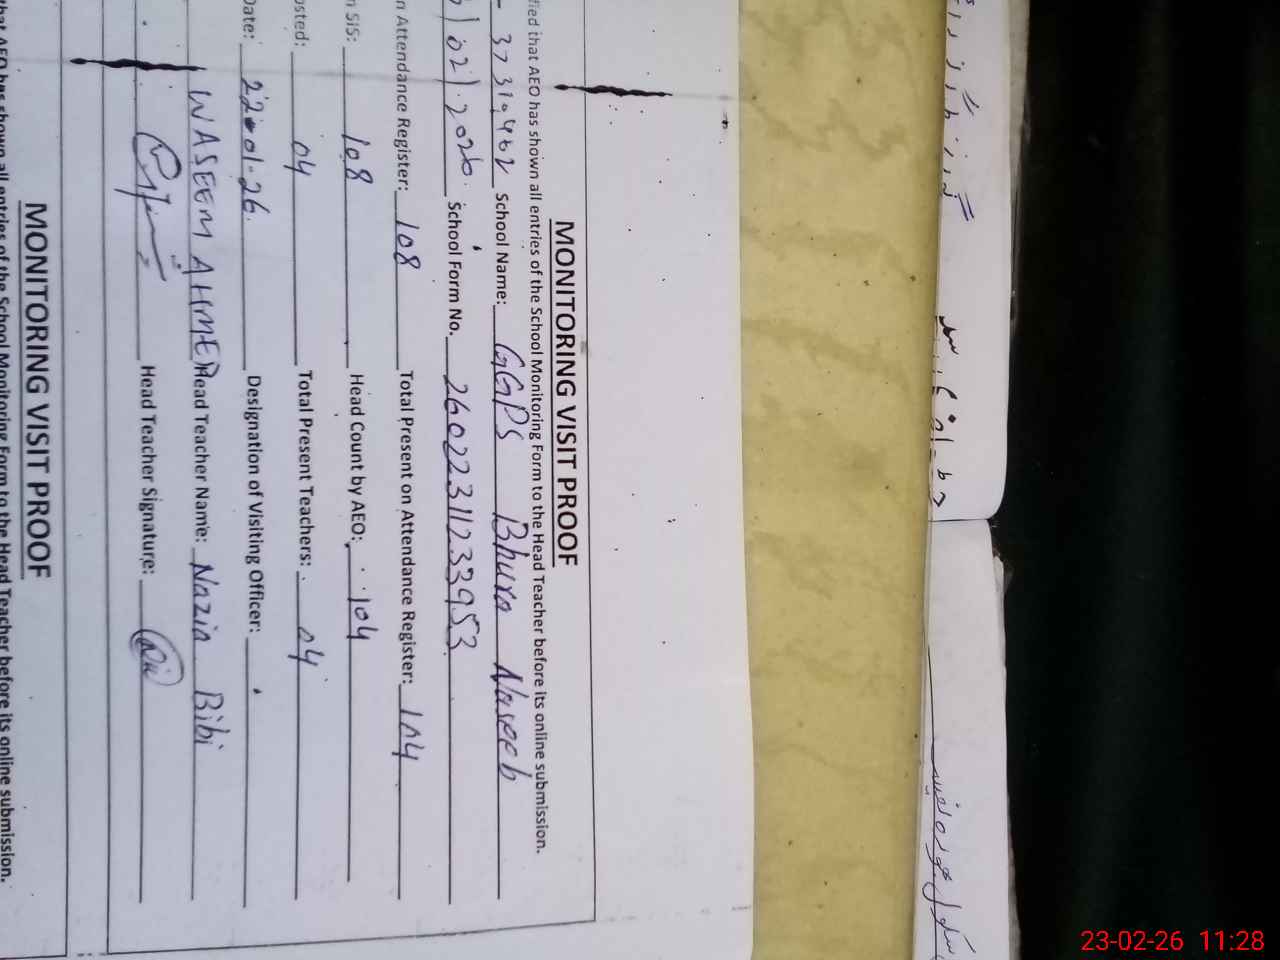 MONITORING VISIT PROOF
ied that AEO has shown all entries of the School Monitoring Form to the Head Teacher before its online submission.
37310402 School Name: GGPS Bhura Naseeb
02).2026. School Form No. 26022311233953
n Attendance Register: 108 Total Present on Attendance Register: 104
n SIS: 108 Head Count by AEO: 104
osted: 04 Total Present Teachers: 04
Date: 22-01-26. Designation of Visiting Officer:
WASEEM AHMED Head Teacher Name: Nazia Bibi
Head Teacher Signature:
MONITORING VISIT PROOF
that AEO has shown all entries of the School Monitoring Form to the Head Teacher before its online submission.
23-02-26 11:28